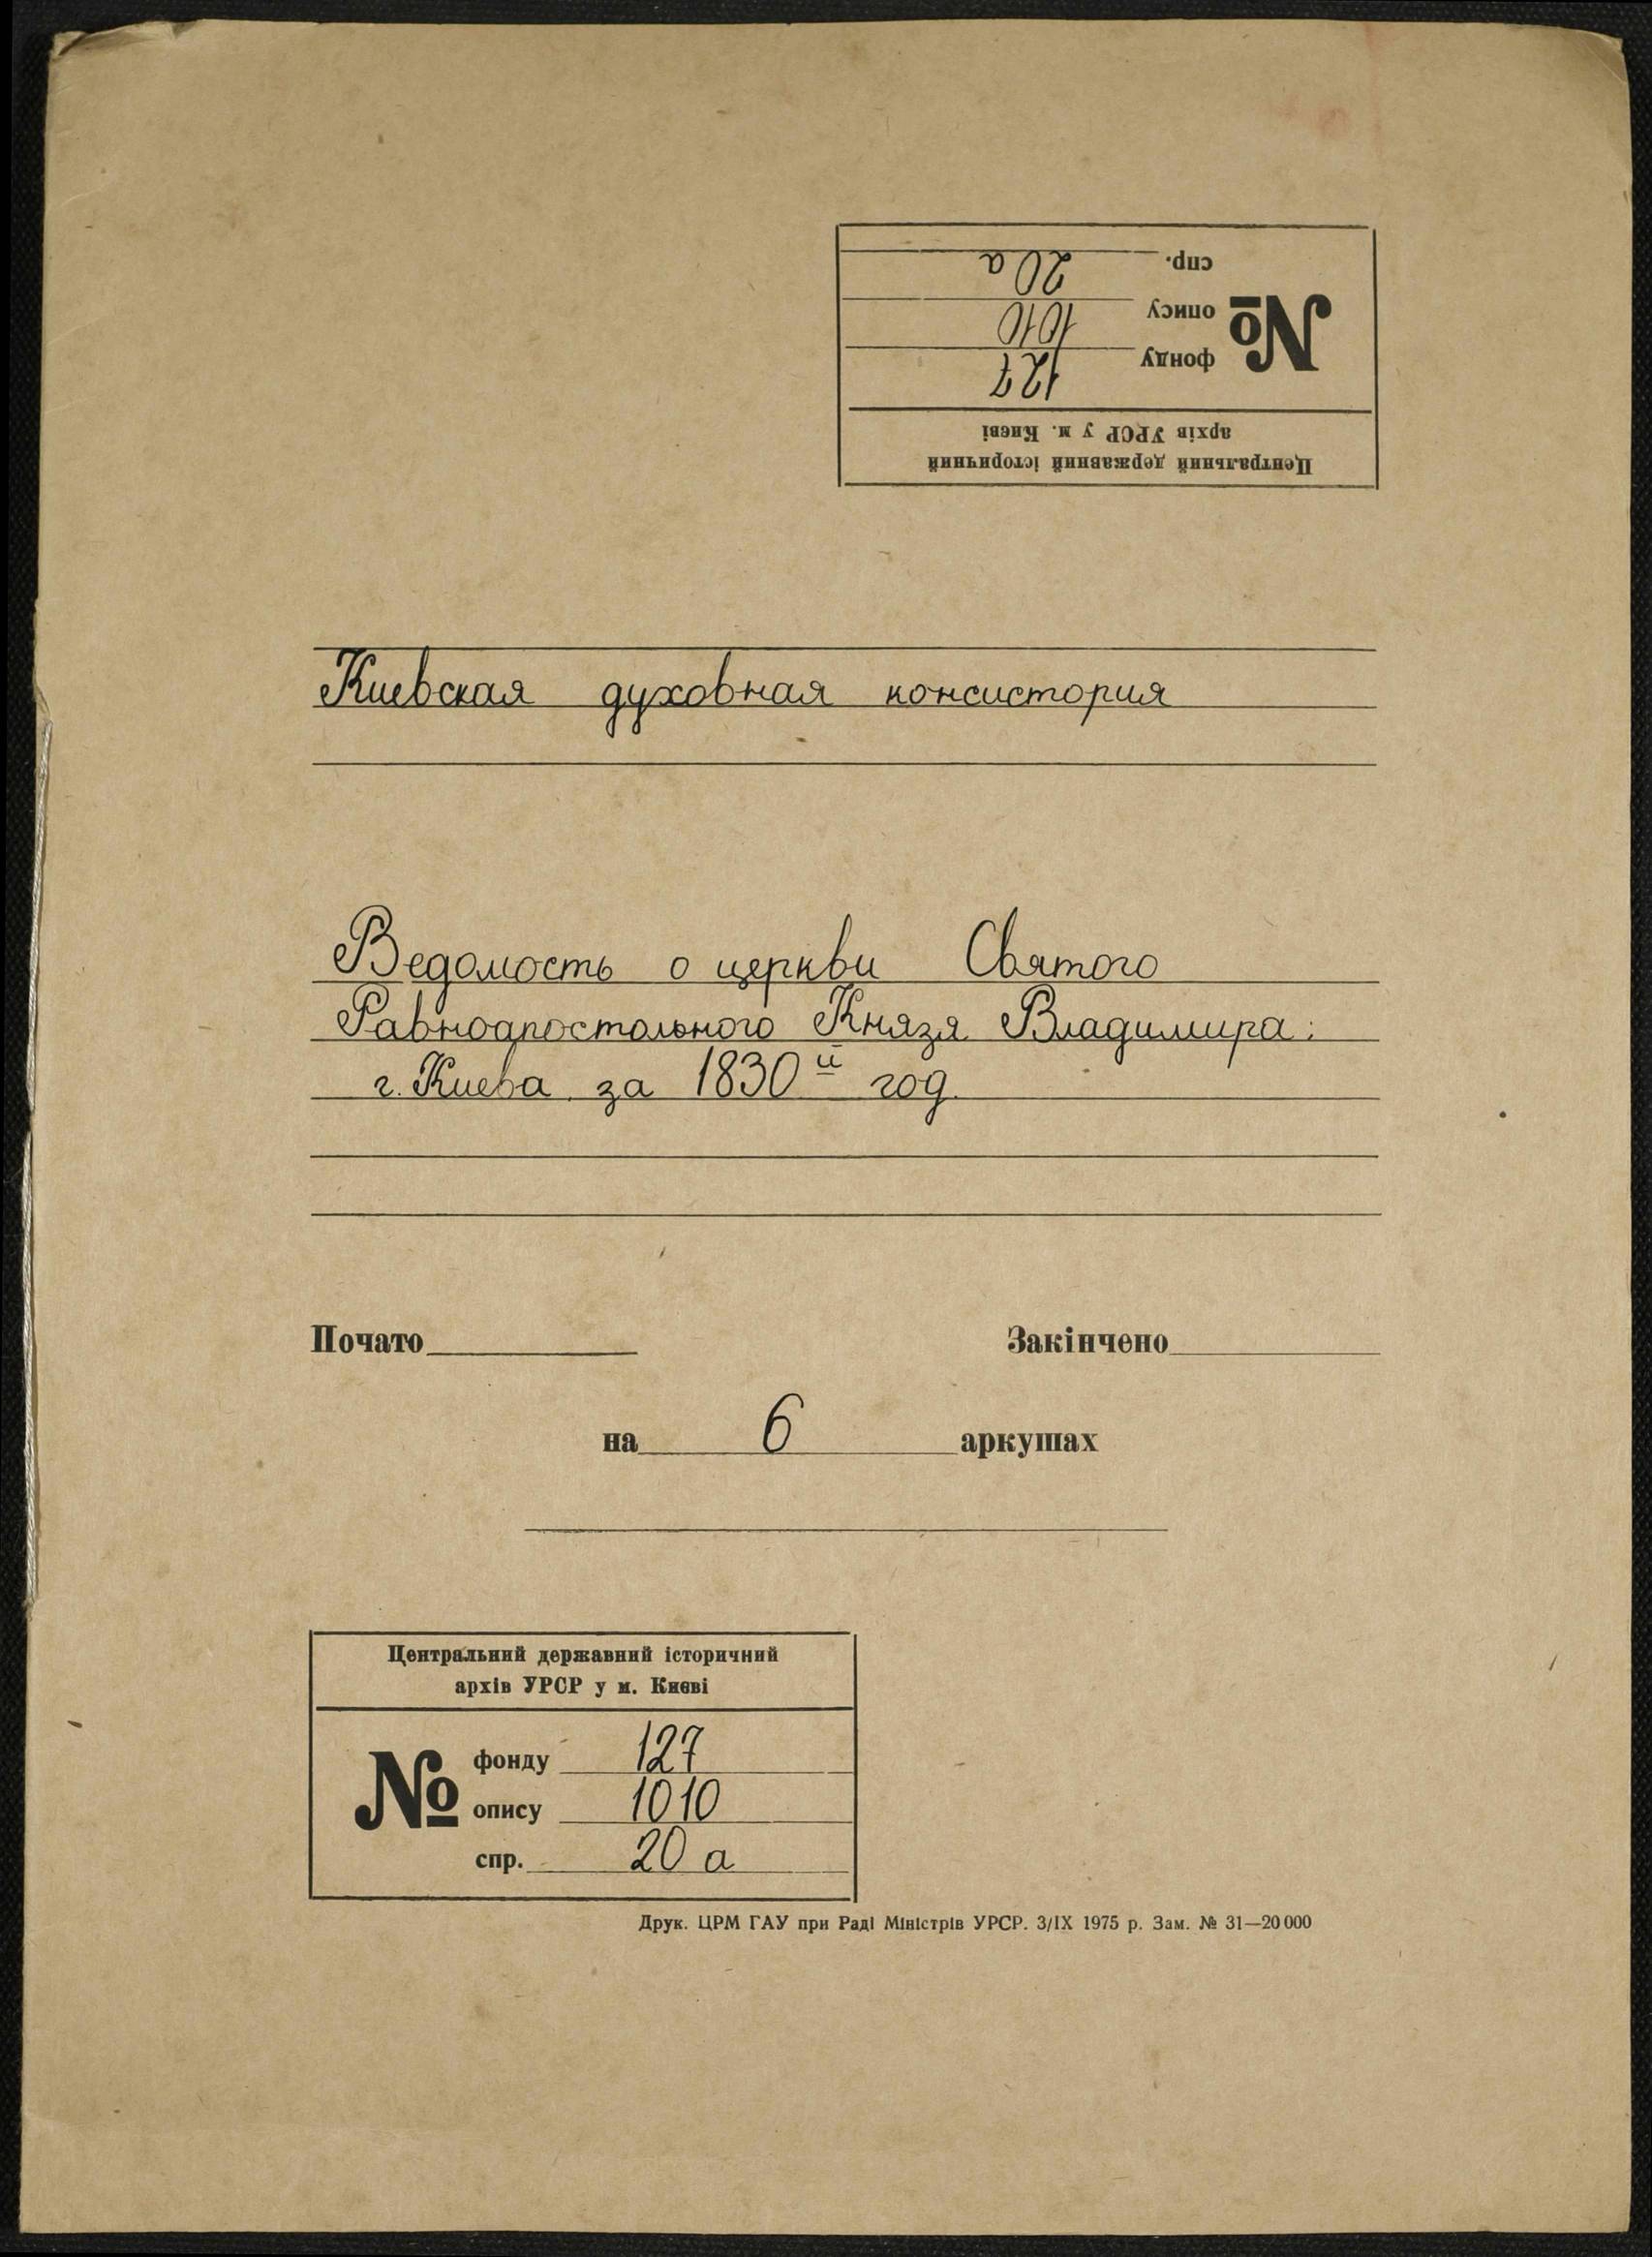 Центральний державний історичний
архів УРСР у м. Києві
№
фонду 127
опису 1010
спр. 20 а
Киевская духовная консистория
Ведомость о церкви Святого
Равноапостольного Князя Владимира:
г. Киева за 1830й год.
Почато Закінчено
на 6 аркушах
Центральний державний історичний
архів УРСР у м. Києві
№
фонду 127
опису 1010
спр. 20 а
Друк. ЦРМ ГАУ при Раді Міністрів УРСР. 3/IX 1975 р. Зам. № 31—20 000